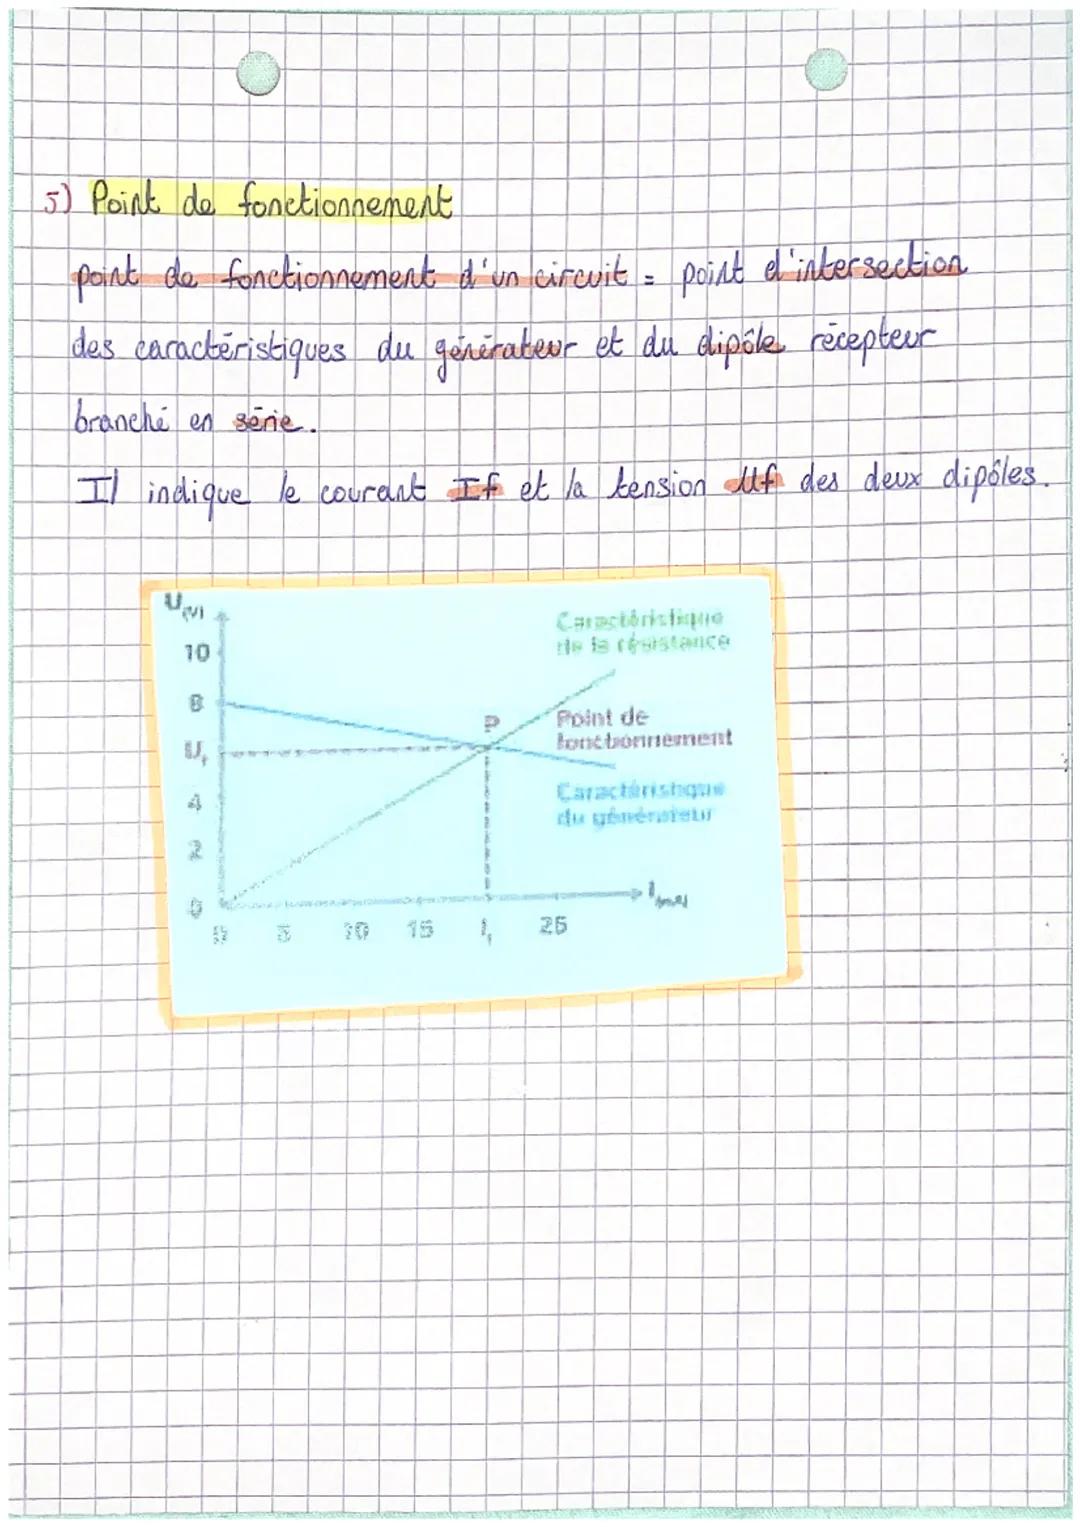 5) Point de fonctionnement
point de fonctionnement d'un circuit = point d'intersection
des caractéristiques du générateur et du dipôle récepteur
branché en série.
Il indique le courant If et la tension Uf des deux dipôles.
U(V)
Caractéristique
de la résistance
10
8
P
Point de
fonctionnement
Uf
Caractéristique
du générateur
4
2
0
I(mA)
0 5 10 15 If 25